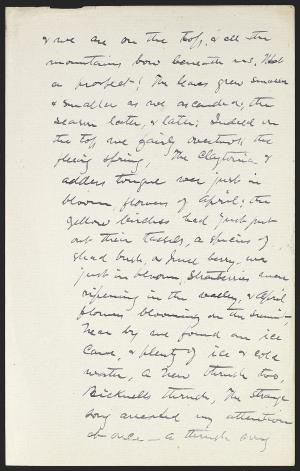 & we are on the top, & all the
mountains bow beneath us. What
a prospect! The leaves grew smaller
& smaller as we ascended, the
season later, & later; Indeed on
the top we fairly overtook the
fleeing spring, The Claytonia &
adders tongue were just in
bloom flowers of April; the
yellow birches had just put
out their tassels, a species of
shad bush, or June berry, was
just in bloom, Strawberries were
ripening in the valley, & April
flowers blooming on the summit,
Near by we found an ice
cave, & plenty of ice & cold
water, A new thrush too,
Bicknells thrush, The strange
song arrested my attention
at once — a thrush song